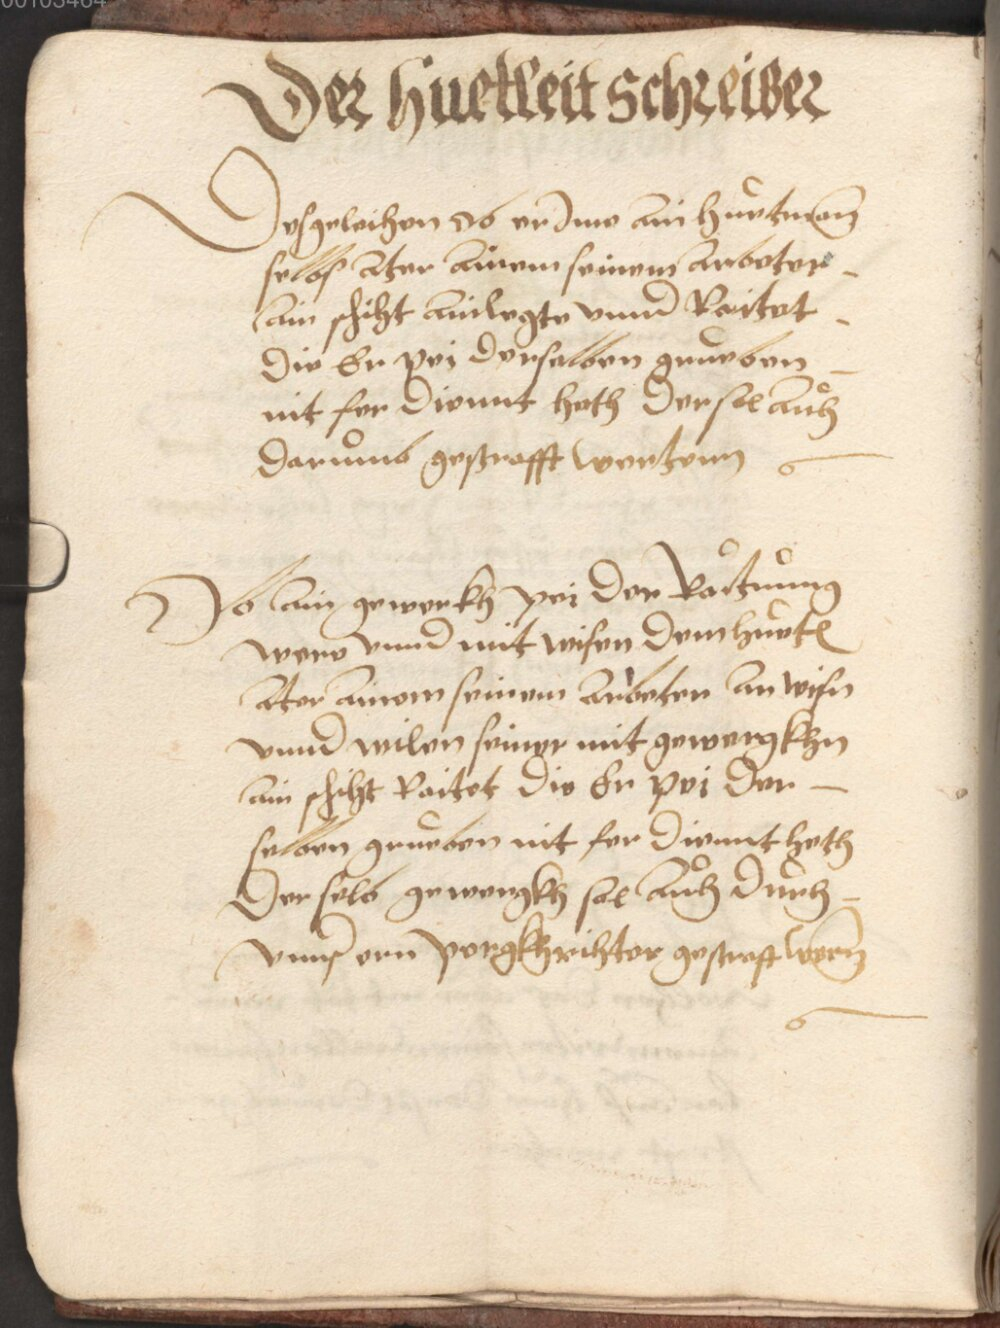 00105464
Der Huetleit Schreiber
Desgeleichen ob er Ime ain huetman
selbs ader ainem seinem arbeter
ain schiht ainlegte vnnd Raitet
die Er pei derselben grueben
nit fer diennt heth der sol auch
darumb gestrafft wertenn
Ob ain gewerkh pei der Raitung
were vnnd mit wisen dem huetl
ader ainem seinem arbeter an wisn
vnnd wilen seiner mit gewergkhn
ain schiht Raitet die Er pei der
selben grueben nit fer dient heth
derselb gewergkh sol auch durch
vnnsern pergkhrihter gestrafft wern